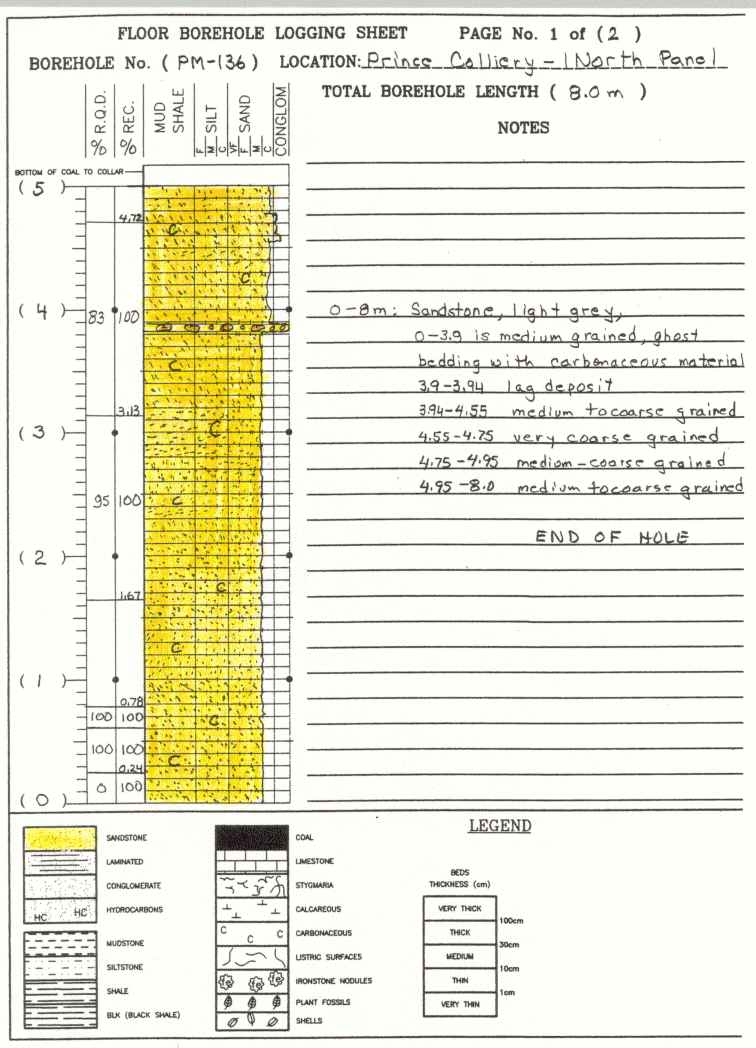 FLOOR BOREHOLE LOGGING SHEET PAGE No. 1 of (2)
BOREHOLE No. (PM-136) LOCATION: Prince Colliery - 1 North Panel
TOTAL BOREHOLE LENGTH ( 8.0 m )
NOTES
% R.Q.D.
% REC.
MUD
SHALE
F M C
SILT
VF F M C
SAND
CONGLOM
BOTTOM OF COAL TO COLLAR
( 5 )
4.72
C
C
( 4 )
83 100
0-8m: Sandstone, light grey,
0-3.9 is medium grained, ghost
bedding with carbonaceous material
3.9-3.94 lag deposit
3.94-4.55 medium to coarse grained
4.55-4.75 very coarse grained
4.75-4.95 medium-coarse grained
4.95-8.0 medium to coarse grained
END OF HOLE
C
3.13
( 3 )
C
95 100
C
( 2 )
C
1.67
C
( 1 )
0.78
100 100
C
100 100
C
0.24
0 100
( 0 )
LEGEND
SANDSTONE
LAMINATED
CONGLOMERATE
HC HC
HYDROCARBONS
MUDSTONE
SILTSTONE
SHALE
BLK (BLACK SHALE)
COAL
LIMESTONE
STYGMARIA
CALCAREOUS
C C C
CARBONACEOUS
LISTRIC SURFACES
fe fe fe
IRONSTONE NODULES
PLANT FOSSILS
SHELLS
BEDS
THICKNESS (cm)
VERY THICK
100cm
THICK
30cm
MEDIUM
10cm
THIN
1cm
VERY THIN